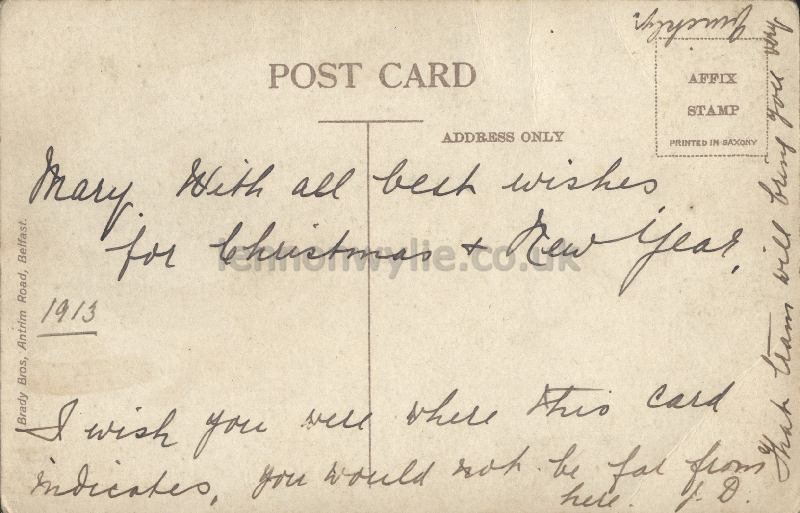 POST CARD
ADDRESS ONLY
AFFIX
STAMP
PRINTED IN SAXONY
Mary. With all best wishes
for Christmas + New Year,
1913
I wish you were where this card
indicates, you would not be far from
here. J. D.
That tram will bring you very
Brady Bros, Antrim Road, Belfast.
lennonwylie.co.uk